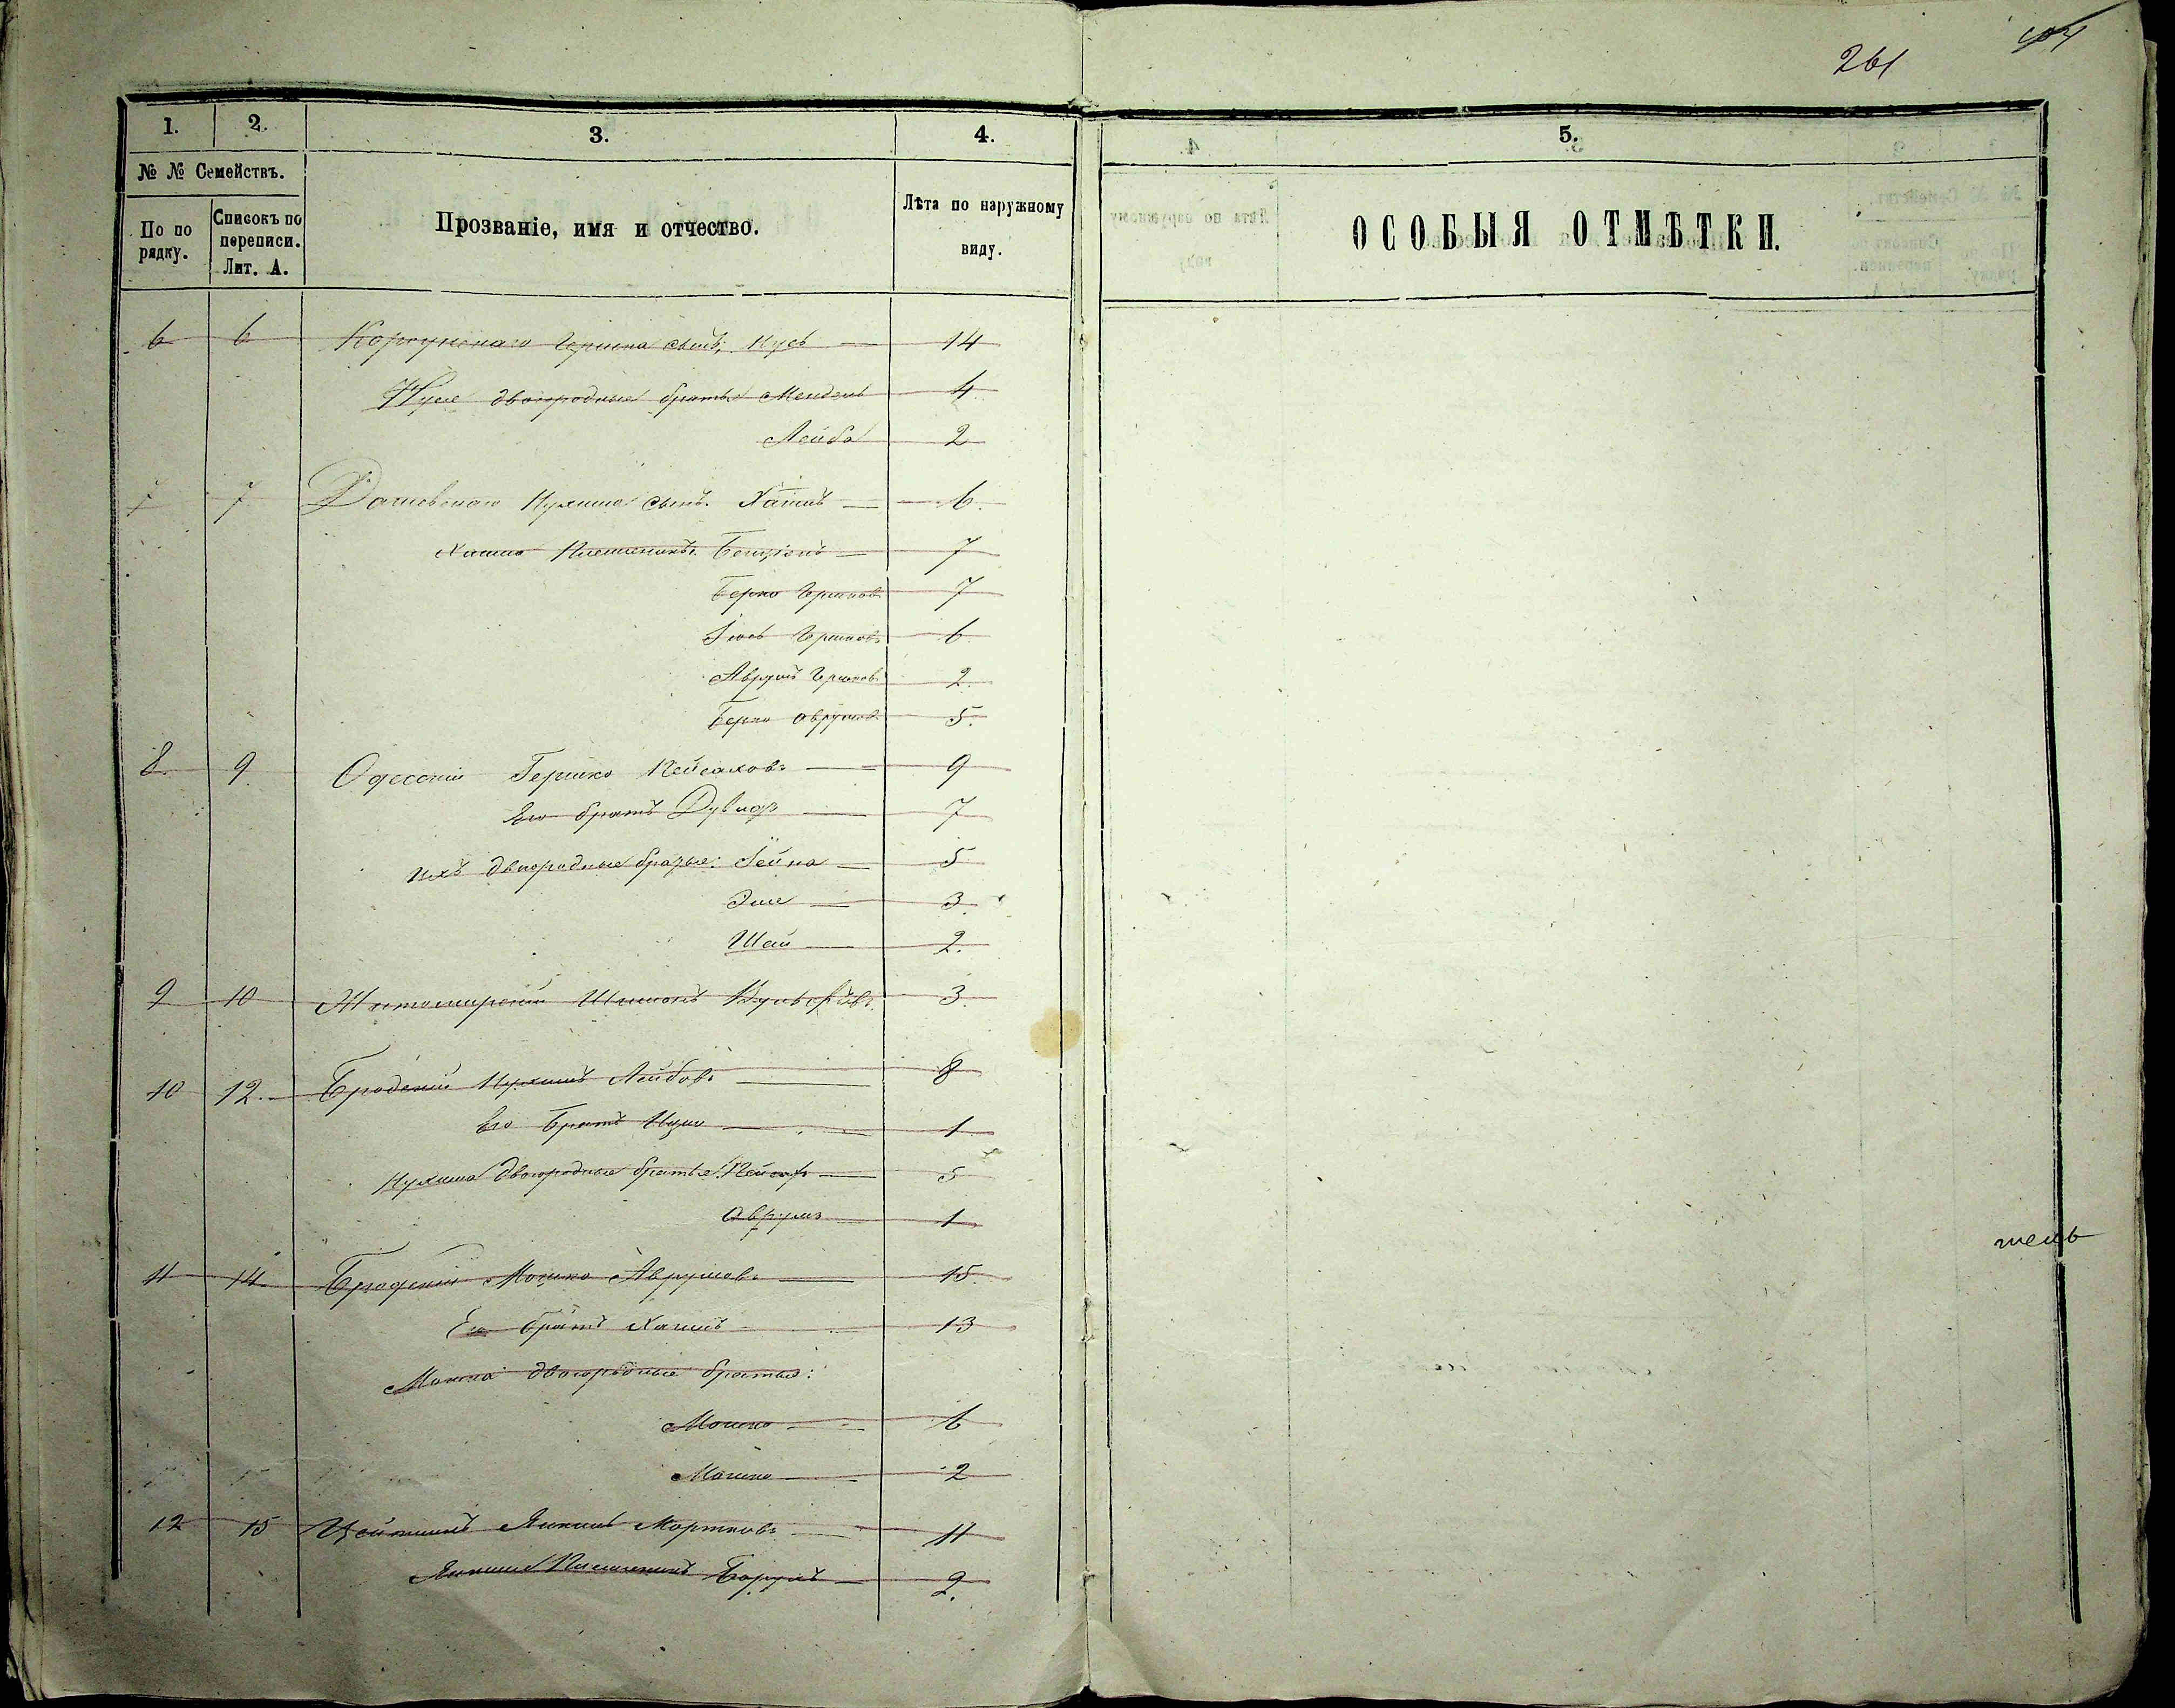 261
1. 2. 3. 4. 5.
№ № Семействъ.
По по рядку.
Списокъ по переписи. Лит. А.
Прозваніе, имя и отчество.
Лѣта по наружному виду.
ОСОБЫЯ ОТМѢТКИ.
6 6 Корсунскаго Гершка сынъ, Нусь 14
Нуся двоюродные братья Мендель 4
Лейба 2
7 7 Дашевскаго Нухима сынъ Хаимъ 6
Хаима Племянникъ Бенціонъ 7
Берко Гершков. 7
Іось Гершковъ 6
Аврумъ Гершков. 2.
Берко Аврумов. 5.
8. 9. Одесскій Гершко Пейсаховъ 9
Его братъ Дувидъ 7
Ихъ двоюродные братья: 5
Эле 3.
Шая 2.
9 10 Житомирскій Шимонъ Вульфовъ 3.
10 12. Бродскій Нухимъ Лейбовъ 8
Его Братъ Ицко 1
Нухима двоюродные братья: Пейсах 5
Аврумъ 1
11 14 Бродскій Мошко Аврумовъ 15.
Его братъ Хаимъ 13
Мошка двоюродные братья:
Мошко 6
Мошко 2
12 15 Цейтлинъ Янкель Мортковъ 11
Племянникъ Борухъ 2.
тель